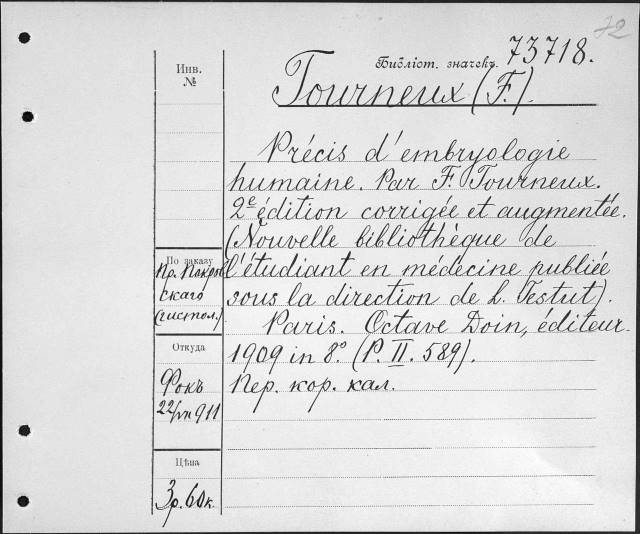 72
Инв.
№
Библіот. значекъ 73718.
Tourneux (F.).
Précis d'embryologie
humaine. Par F. Tourneux.
2e édition corrigée et augmentée.
(Nouvelle bibliothèque de
l'étudiant en médecine publiée
sous la direction de L. Testut).
Paris. Octave Doin, éditeur.
1909 in 8° (P. II. 589).
Пер. кор. кал.
По заказу
Пр. Покров
скаго
(гистол.)
Откуда
Фокъ
911
Цѣна
3 р. 60 к.